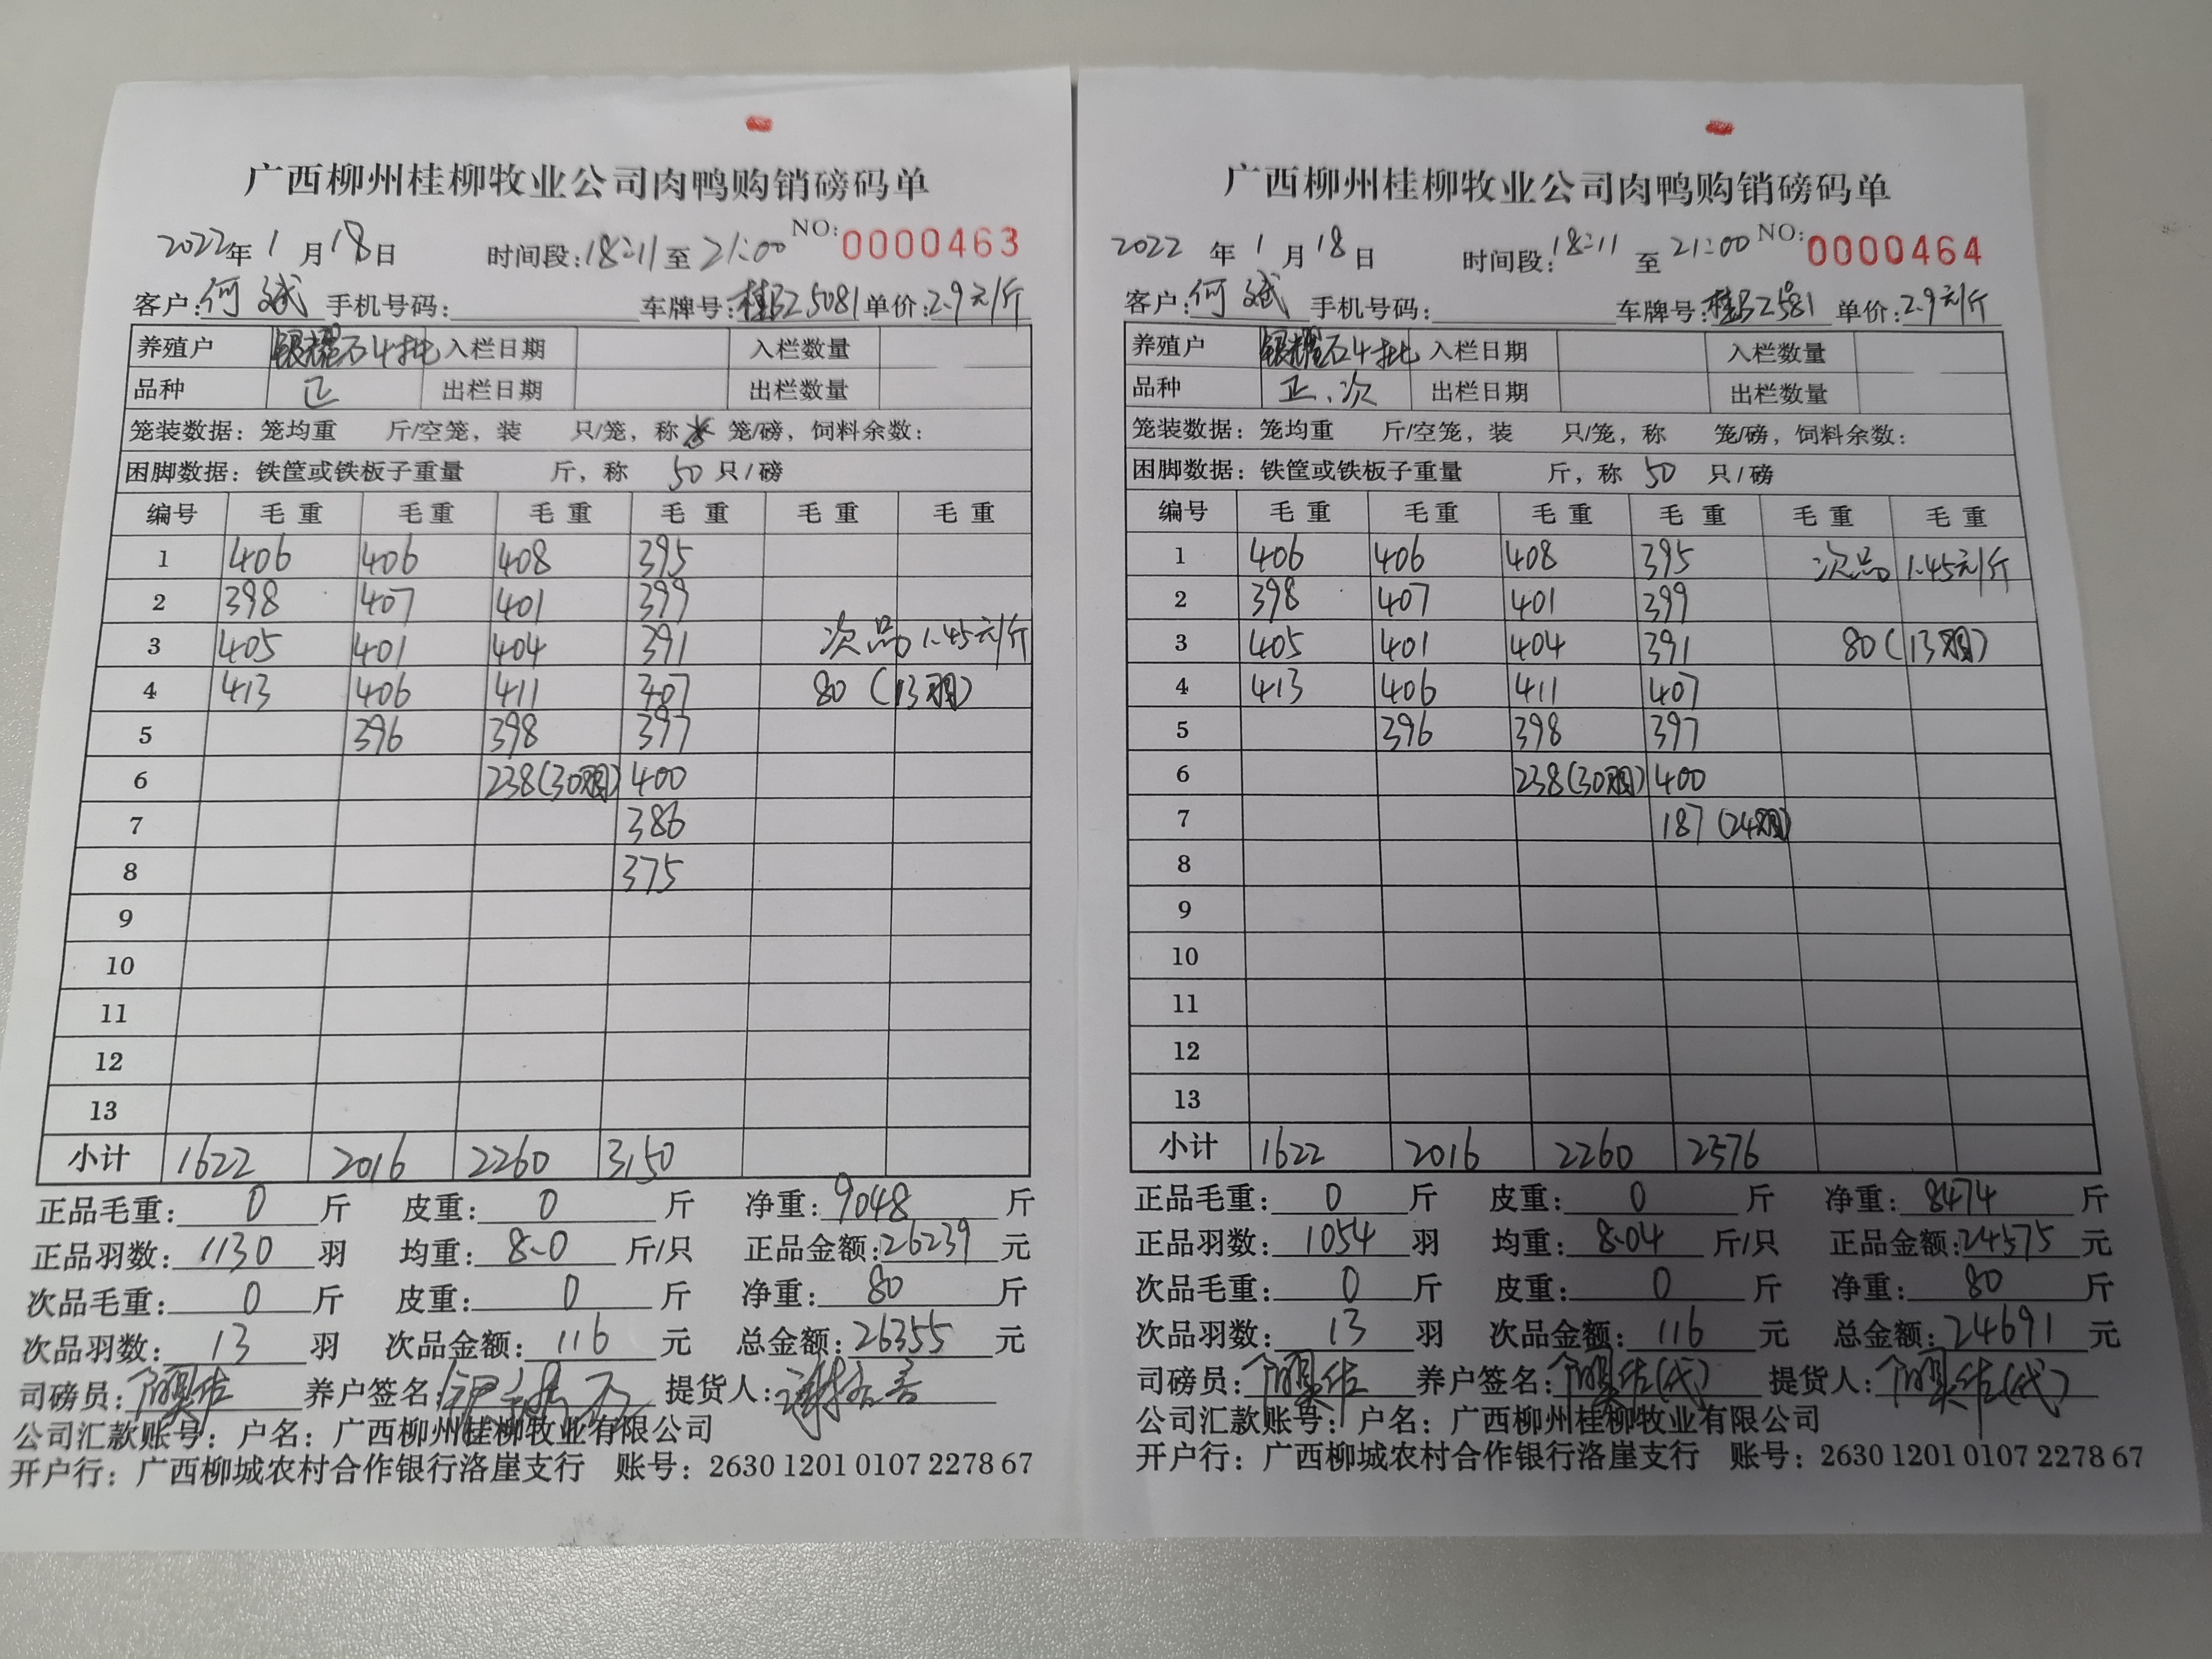 广西柳州桂柳牧业公司肉鸭购销磅码单
2022年1月18日 时间段:18:11至21:00 NO: 0000463
客户:何斌 手机号码: 车牌号:桂BZ5081 单价:2.9元/斤
养殖户 银耀石4批 入栏日期 入栏数量
品种 正 出栏日期 出栏数量
笼装数据: 笼均重 斤/空笼, 装 只/笼, 称 笼/磅, 饲料余数:
困脚数据: 铁筐或铁板子重量 斤, 称 50 只/磅
编号 毛重 毛重 毛重 毛重 毛重 毛重
1 406 406 408 395
2 398 407 401 399
3 405 401 404 391 次品 1.45元/斤
4 413 406 411 407 80 (13羽)
5 396 398 397
6 238(30羽) 400
7 386
8 375
9
10
11
12
13
小计 1622 2016 2260 3150
正品毛重: 0 斤 皮重: 0 斤 净重: 9048 斤
正品羽数: 1130 羽 均重: 8.0 斤/只 正品金额: 26239 元
次品毛重: 0 斤 皮重: 0 斤 净重: 80 斤
次品羽数: 13 羽 次品金额: 116 元 总金额: 26355 元
司磅员: 养户签名: 提货人:
公司汇款账号: 户名: 广西柳州桂柳牧业有限公司
开户行: 广西柳城农村合作银行洛崖支行 账号: 2630 1201 0107 2278 67
广西柳州桂柳牧业公司肉鸭购销磅码单
2022年1月18日 时间段:18:11至21:00 NO: 0000464
客户:何斌 手机号码: 车牌号: 单价:2.9元/斤
养殖户 银耀石4批 入栏日期 入栏数量
品种 正、次 出栏日期 出栏数量
笼装数据: 笼均重 斤/空笼, 装 只/笼, 称 笼/磅, 饲料余数:
困脚数据: 铁筐或铁板子重量 斤, 称 50 只/磅
编号 毛重 毛重 毛重 毛重 毛重 毛重
1 406 406 408 395 次品 1.45元/斤
2 398 407 401 399
3 405 401 404 391 80 (13羽)
4 413 406 411 407
5 396 398 397
6 238(30羽) 400
7 187 (24羽)
8
9
10
11
12
13
小计 1622 2016 2260 2576
正品毛重: 0 斤 皮重: 0 斤 净重: 8474 斤
正品羽数: 1054 羽 均重: 8.04 斤/只 正品金额: 24575 元
次品毛重: 0 斤 皮重: 0 斤 净重: 80 斤
次品羽数: 13 羽 次品金额: 116 元 总金额: 24691 元
司磅员: 养户签名: (代) 提货人: (代)
公司汇款账号: 户名: 广西柳州桂柳牧业有限公司
开户行: 广西柳城农村合作银行洛崖支行 账号: 2630 1201 0107 2278 67